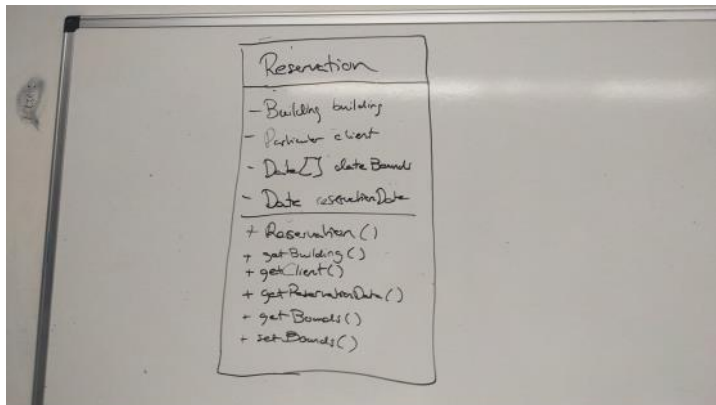 Reservation
- Building building
- Particular client
- Date[] dateBounds
- Date reservationDate
+ Reservation()
+ getBuilding()
+ getClient()
+ getReservationDate()
+ getBounds()
+ setBounds()